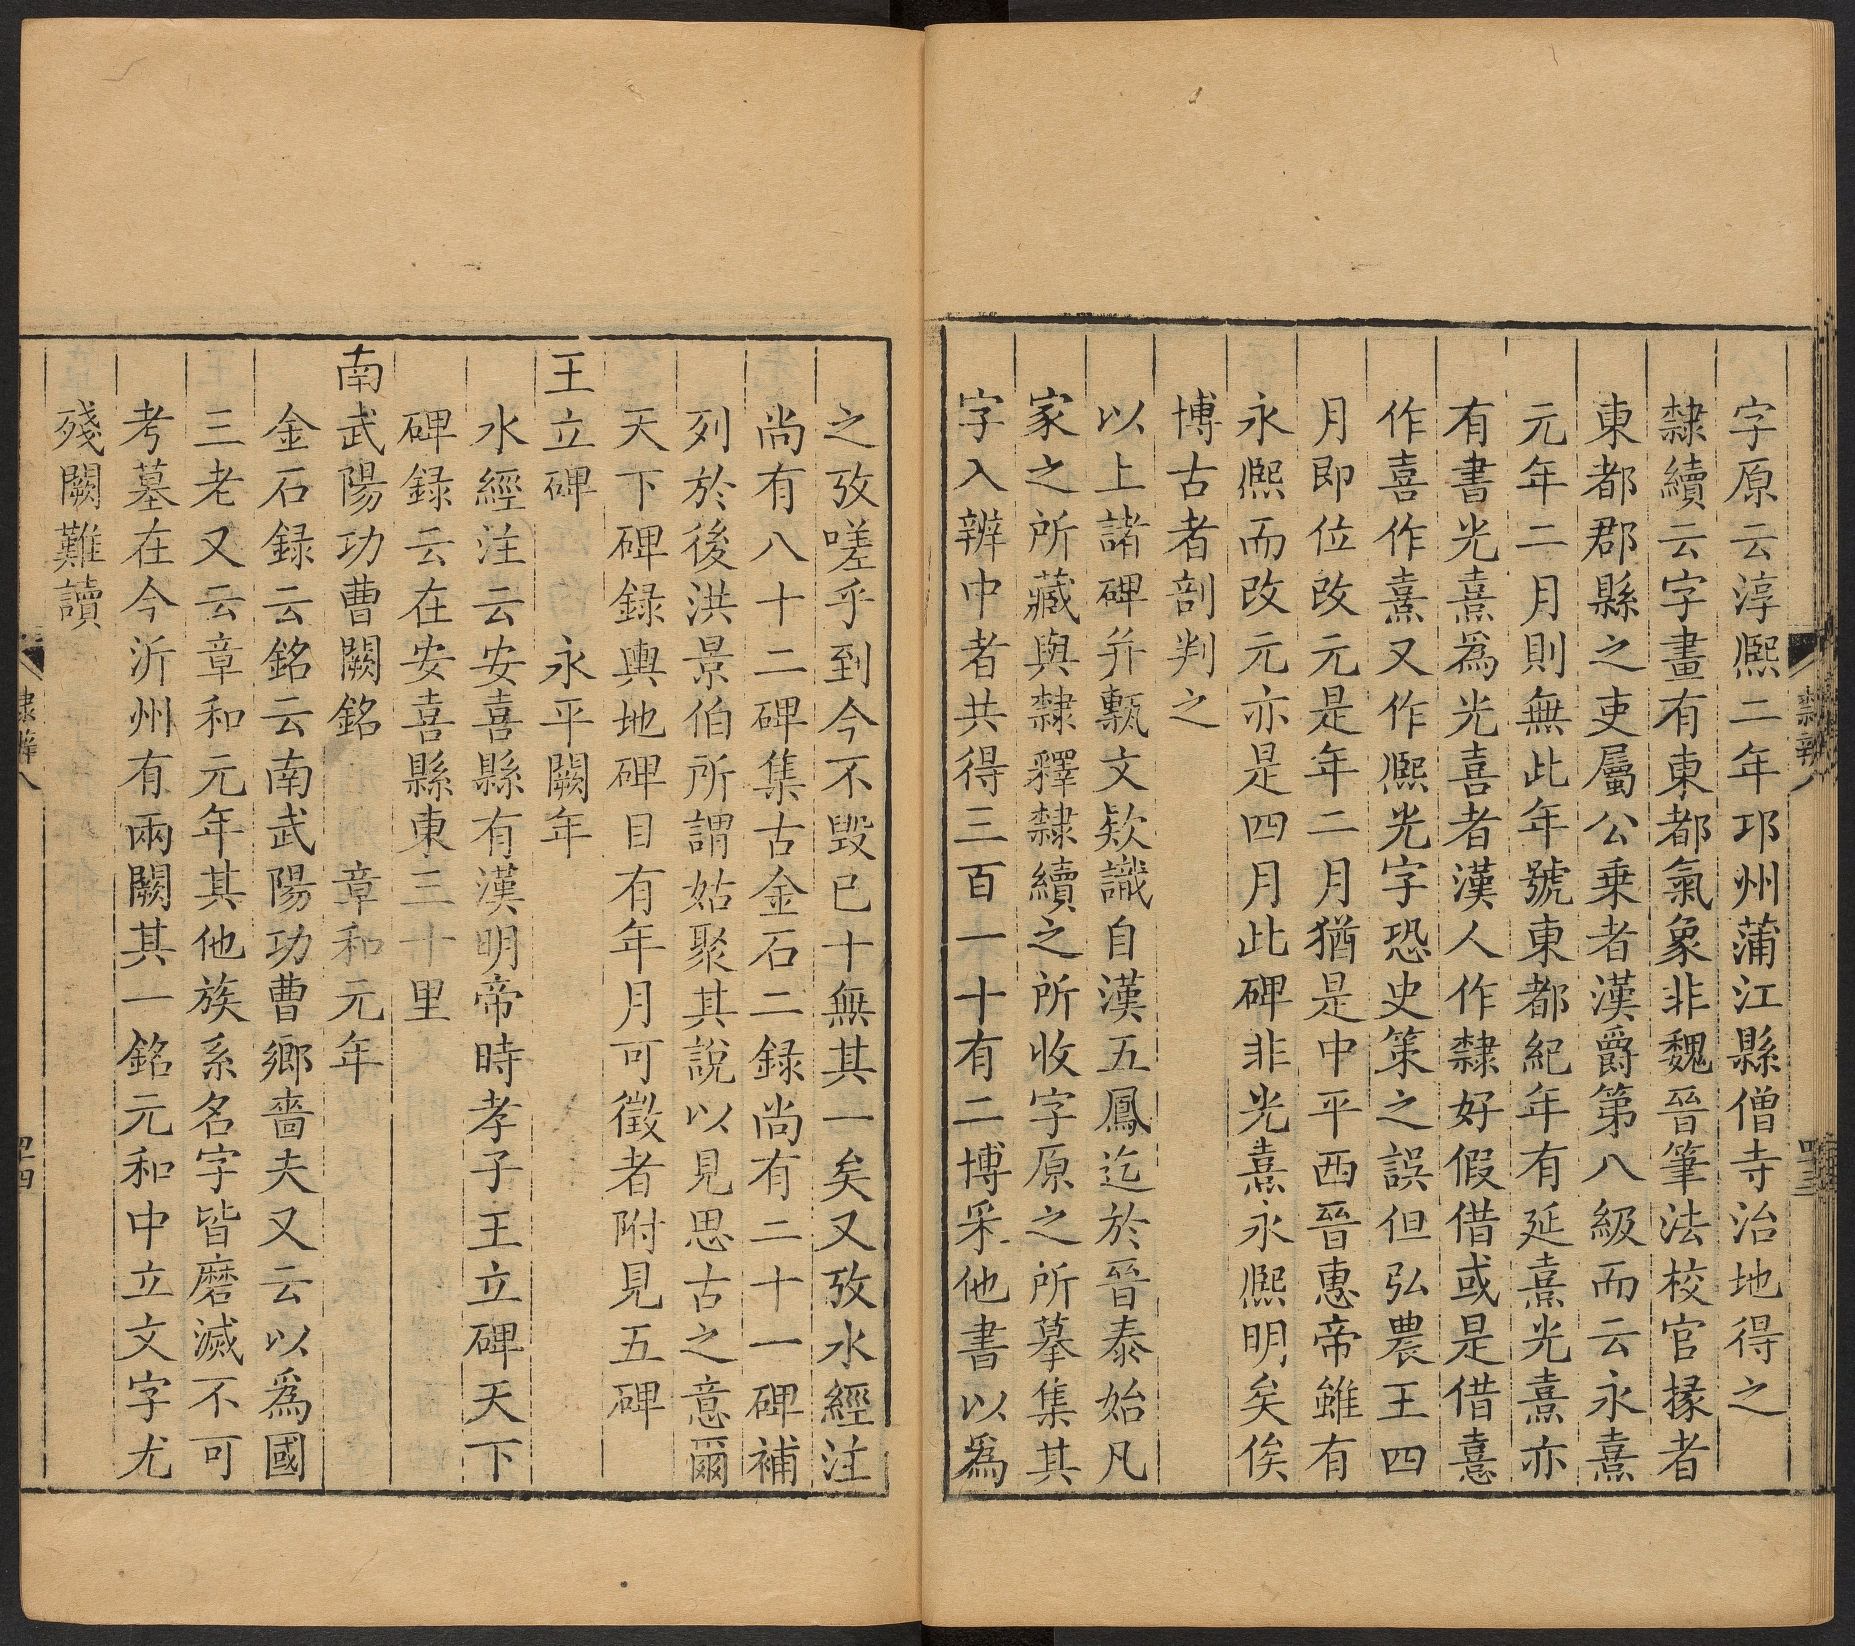 字原云淳熈二年邛州蒲江縣僧寺治地得之
隸續云字畫有東都氣象非魏晉筆法校官掾者
東都郡縣之吏屬公乗者漢爵第八級而云永熹
元年二月則無此年號東都紀年有延熹光熹亦
有書光熹爲光喜者漢人作隸好假借或是借憙
作喜作熹又作熈光字恐史策之誤但弘農王四
月即位改元是年二月猶是中平西晉惠帝雖有
永熈而改元亦是四月此碑非光熹永熈明矣俟
博古者剖判之
以上諸碑并甎文款識自漢五鳳迄於晉泰始凡
家之所藏與隸釋隸續之所收字原之所摹集其
字入辨中者共得三百一十有二博采他書以爲
隸辨八
四十三
之攷嗟乎到今不毀已十無其一矣又攷水經注
尚有八十二碑集古金石二録尚有二十一碑補
列於後洪景伯所謂姑聚其說以見思古之意爾
天下碑録輿地碑目有年月可徵者附見五碑
王立碑　　永平闕年
水經注云安喜縣有漢明帝時孝子王立碑天下
碑録云在安喜縣東三十里
南武陽功曹闕銘　　章和元年
金石録云銘云南武陽功曹鄉嗇夫又云以爲國
三老又云章和元年其他族系名字皆磨滅不可
考墓在今沂州有兩闕其一銘元和中立文字尤
殘闕難讀
隸辨八